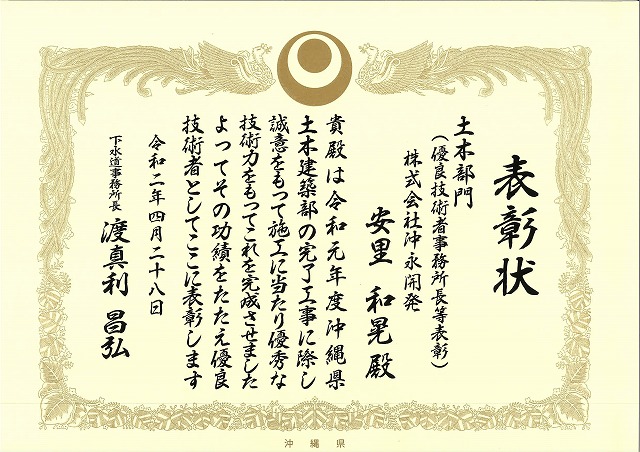 表彰状
土木部門
（優良技術者事務所長等表彰）
株式会社沖永開発
安里 和晃 殿
貴殿は令和元年度沖縄県
土木建築部の完了工事に際し
誠意をもって施工に当たり優秀な
技術力をもってこれを完成させました
よってその功績をたたえ優良
技術者としてここに表彰します
令和二年四月二十八日
下水道事務所長 渡真利 昌弘
沖縄県